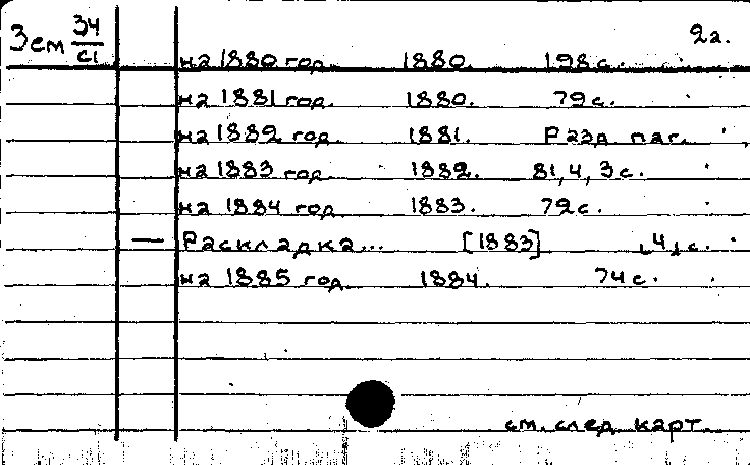 Зем 34/с1 2а.
на 1880 год 1880. 198 с.
на 1881 год. 1880. 79 с.
на 1882 год. 1881. Разд. паг.
на 1883 год. 1882. 81, 4, 3 с.
на 1884 год 1883. 79 с.
— Раскладка... [1883] 4 с.
на 1885 год. 1884. 74 с.
см. след. карт.